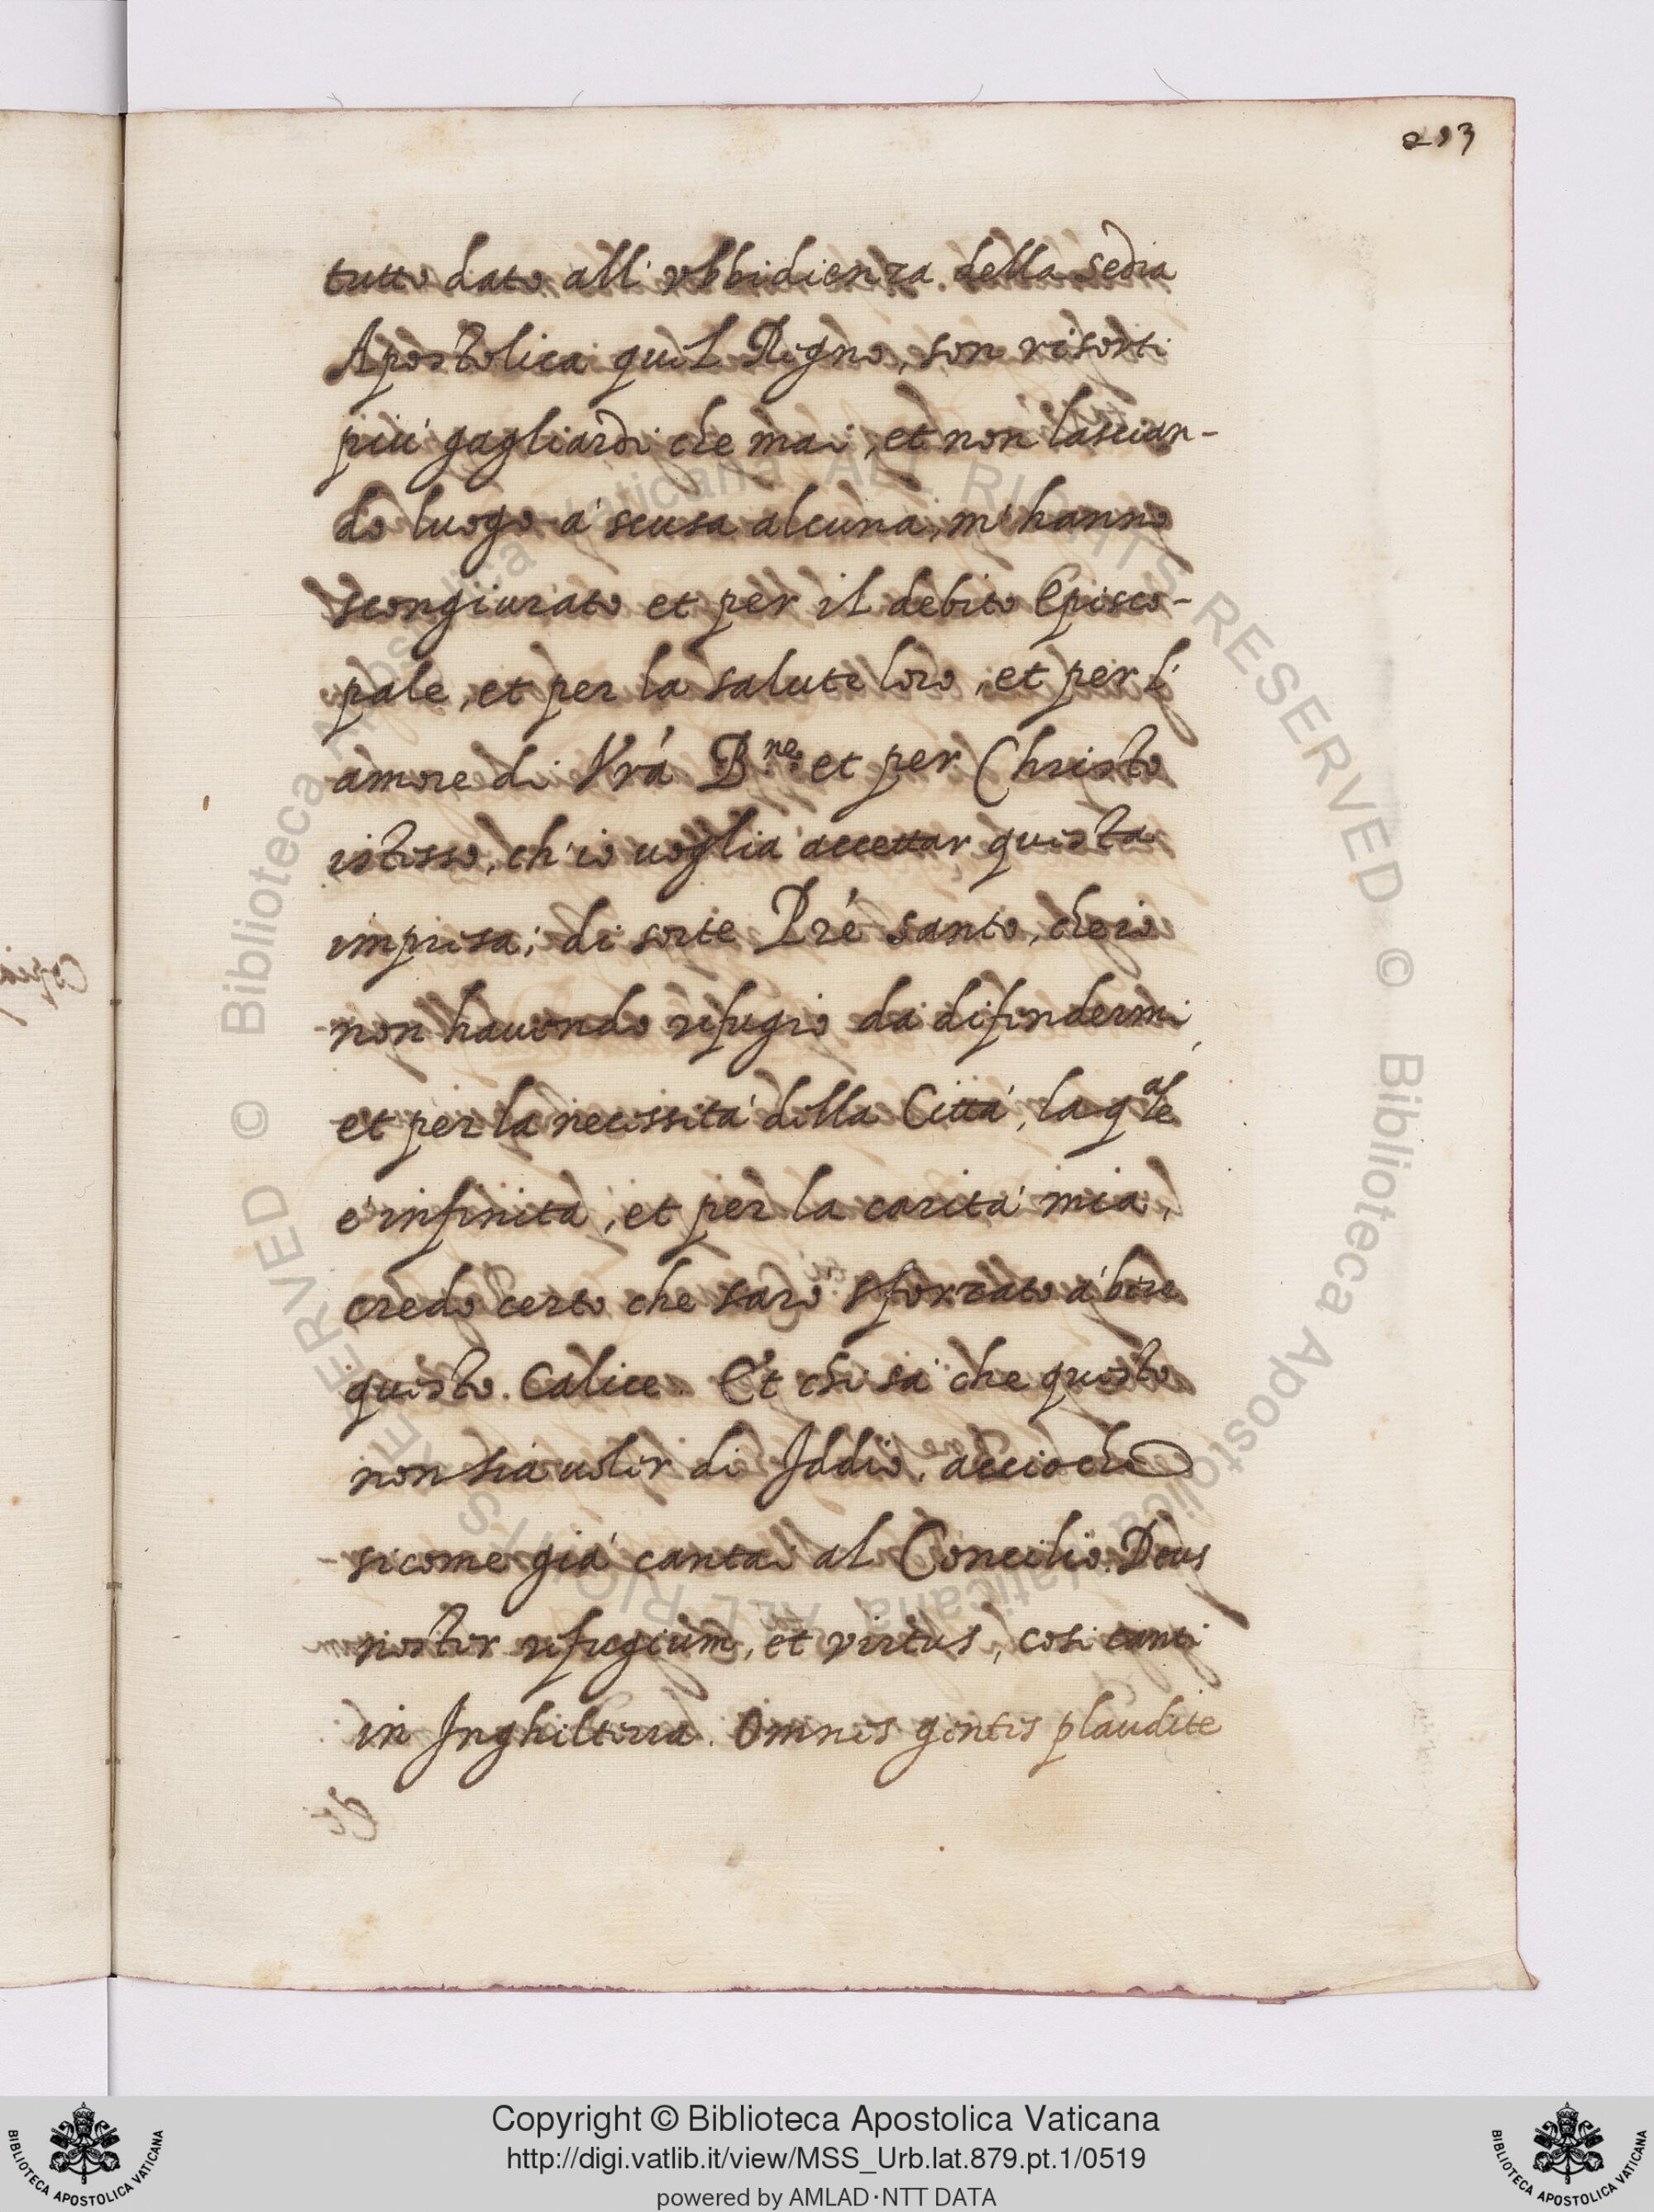 293
tutto dato all' vbbidienza della sedia
Apostolica quel Regno, son risorti
più gagliardi che mai, et non lascian-
do luogo a' scusa alcuna, m'hanno
scongiurato et per il debito Episco-
pale, et per la salute loro, et per l'
amore di Vrá B.ne et per Christo
istesso, ch'io uoglia accettar questa
impresa; di sorte Pré santo, che io
non hauendo refugio da difendermi,
et per la necessità della Città, la qale
è infinita, et per la carità mia,
credo certo che sarò sforzato à bere
questo Calice. Et chi sà che questo
non sia uoler di Iddio, acciochè
sicome già cantai al Concilio. Deus
noster refugium, et virtus, cosi canti
in Inghilterra. Omnes gentes plaudite
Copia
Copyright © Biblioteca Apostolica Vaticana
http://digi.vatlib.it/view/MSS_Urb.lat.879.pt.1/0519
powered by AMLAD·NTT DATA
BIBLIOTECA APOSTOLICA VATICANA
BIBLIOTECA APOSTOLICA VATICANA
© Biblioteca Apostolica Vaticana ALL RIGHTS RESERVED © Biblioteca Apostolica Vaticana ALL RIGHTS RESERVED